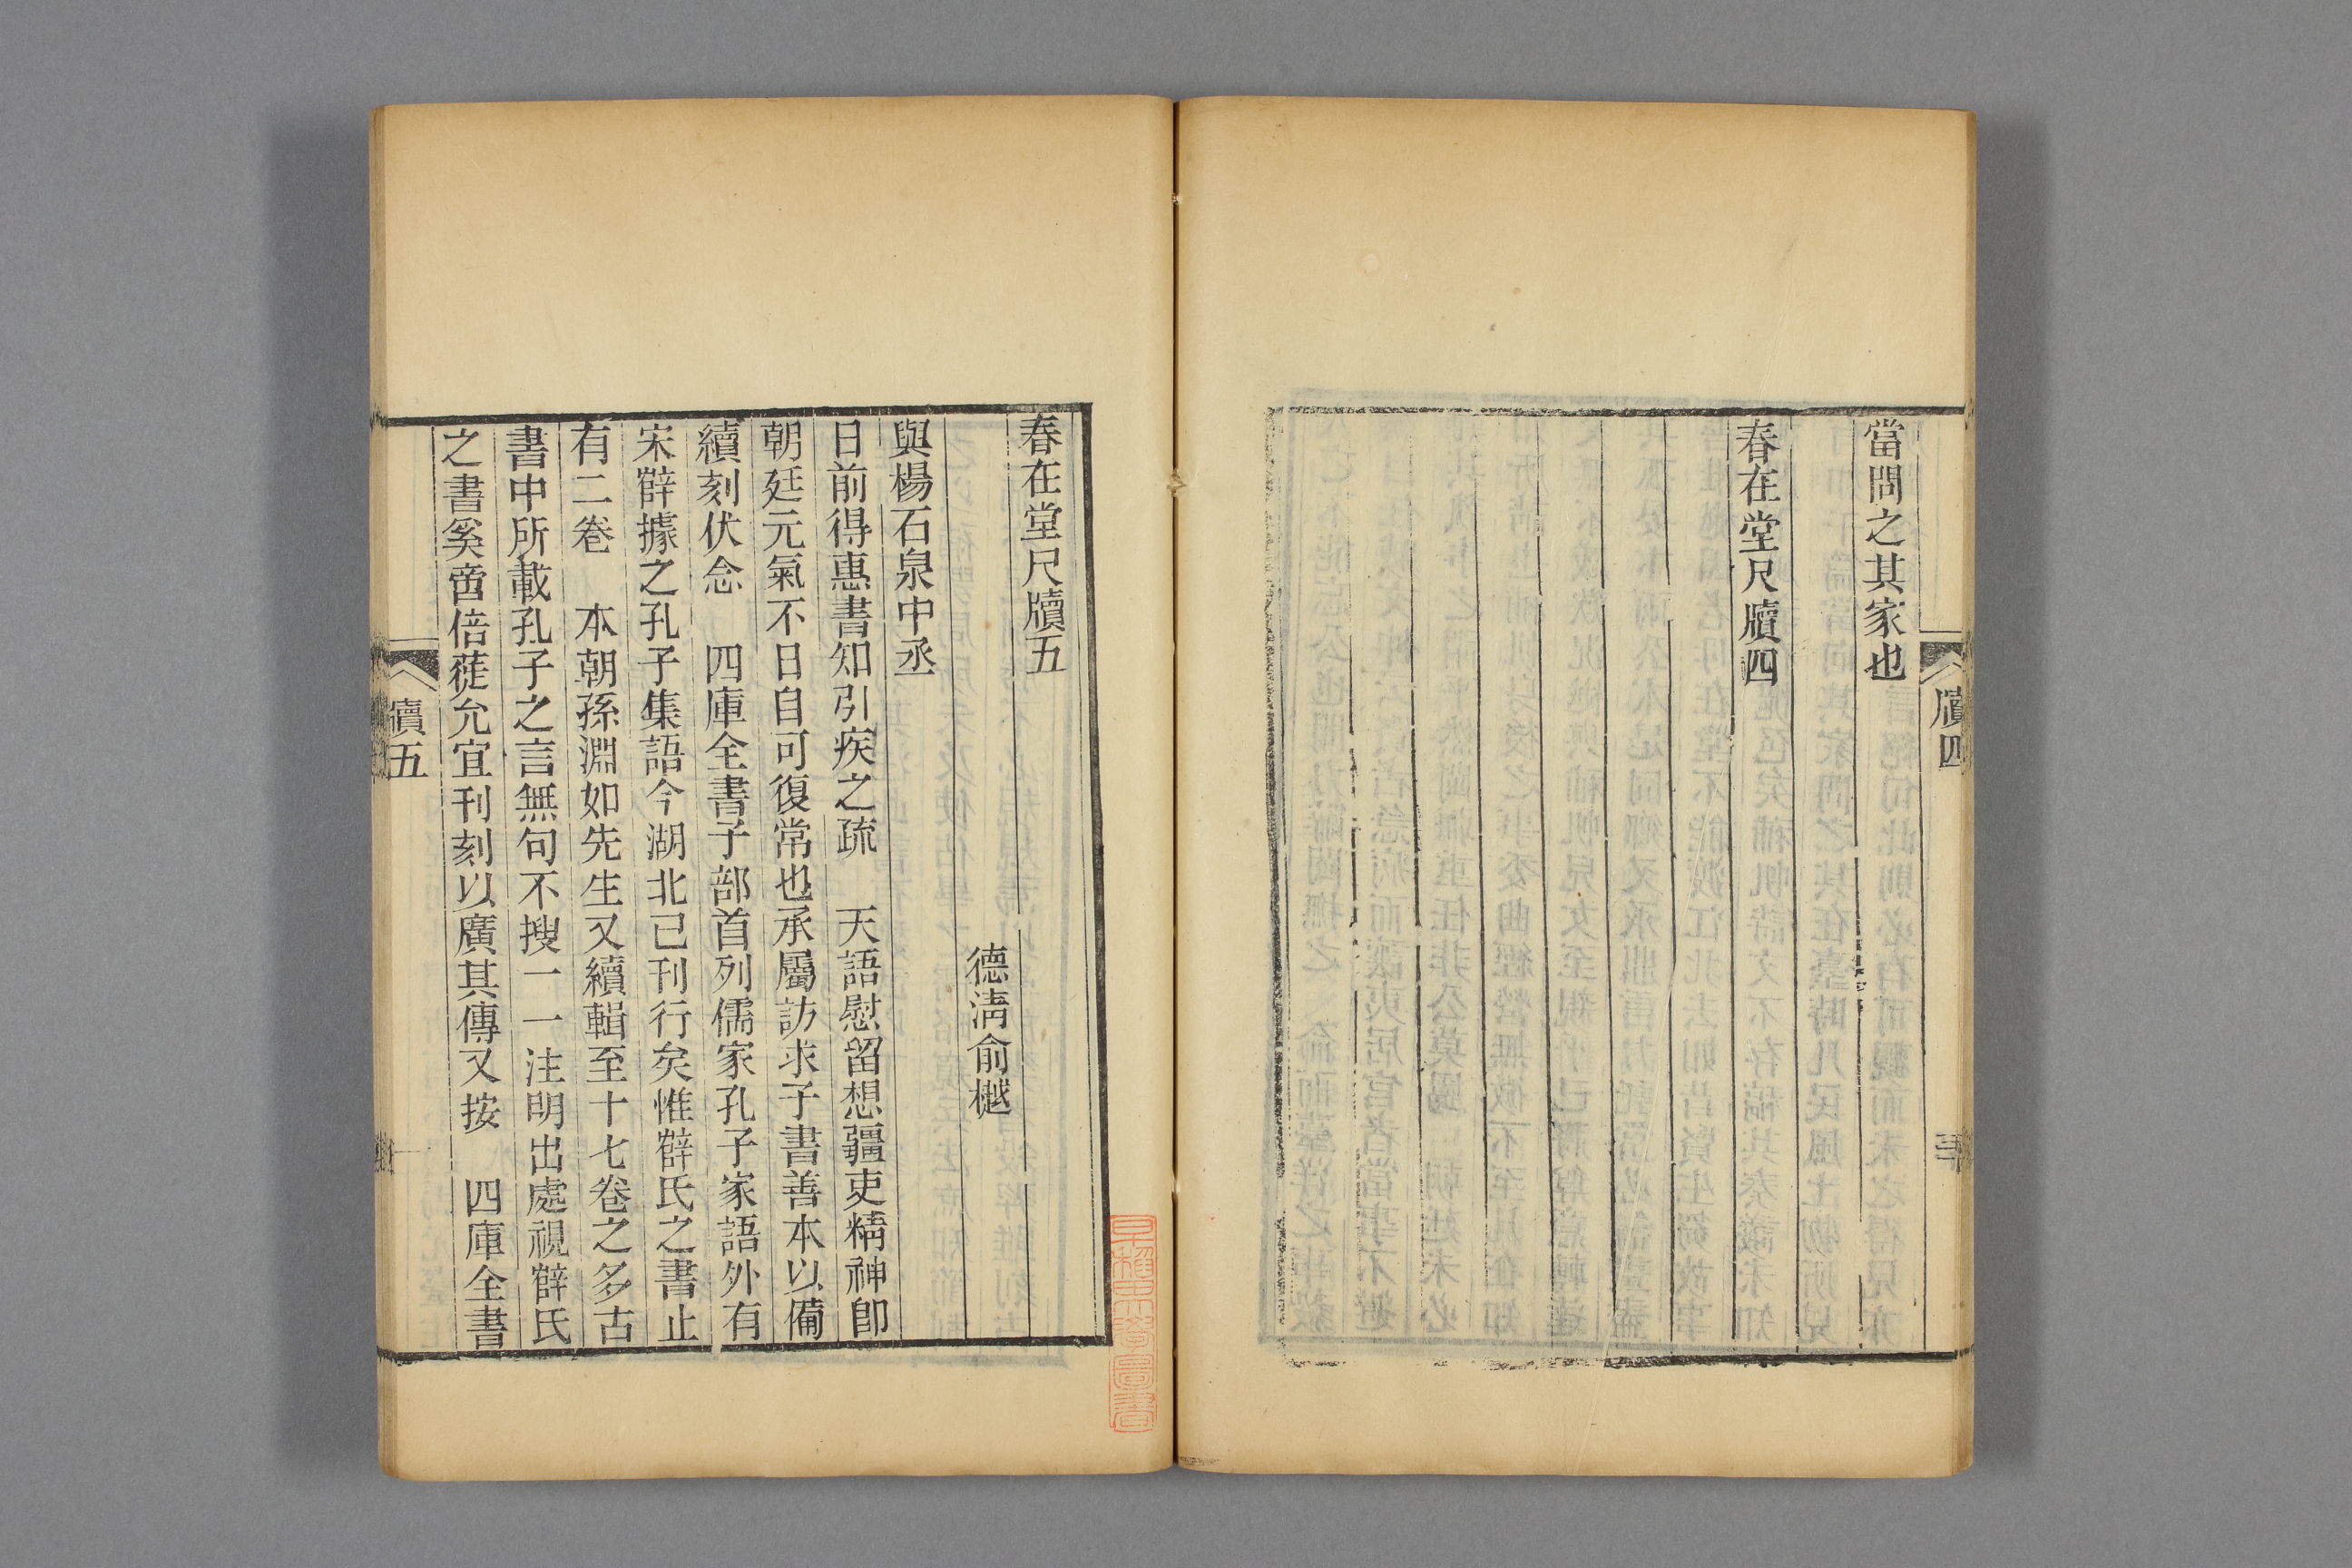 當問之其家也
春在堂尺牘四
牘四
春在堂尺牘五
德清俞樾
與楊石泉中丞
日前得惠書知引疾之疏　天語慰留想疆吏精神卽
朝廷元氣不日自可復常也承屬訪求子書善本以備
續刻伏念　四庫全書子部首列儒家孔子家語外有
宋薛據之孔子集語今湖北已刊行矣惟薛氏之書止
有二卷　本朝孫淵如先生又續輯至十七卷之多古
書中所載孔子之言無句不搜一一注明出處視薛氏
之書奚啻倍蓰允宜刊刻以廣其傳又按　四庫全書
牘五
一
早稻田大學圖書